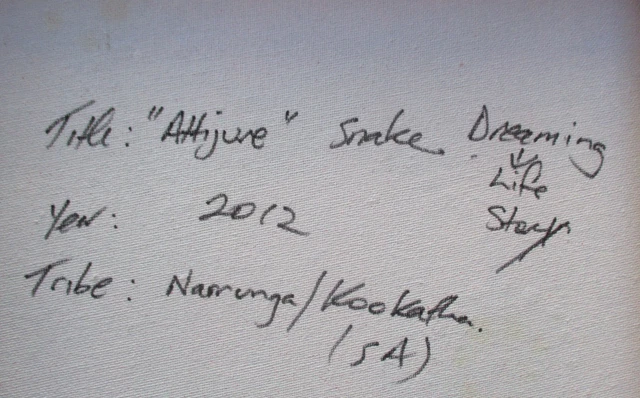 Title: "Attijure" Snake Dreaming
↓
Life
Story
Year: 2012
Tribe: Narrunga/Kookatha.
(SA)